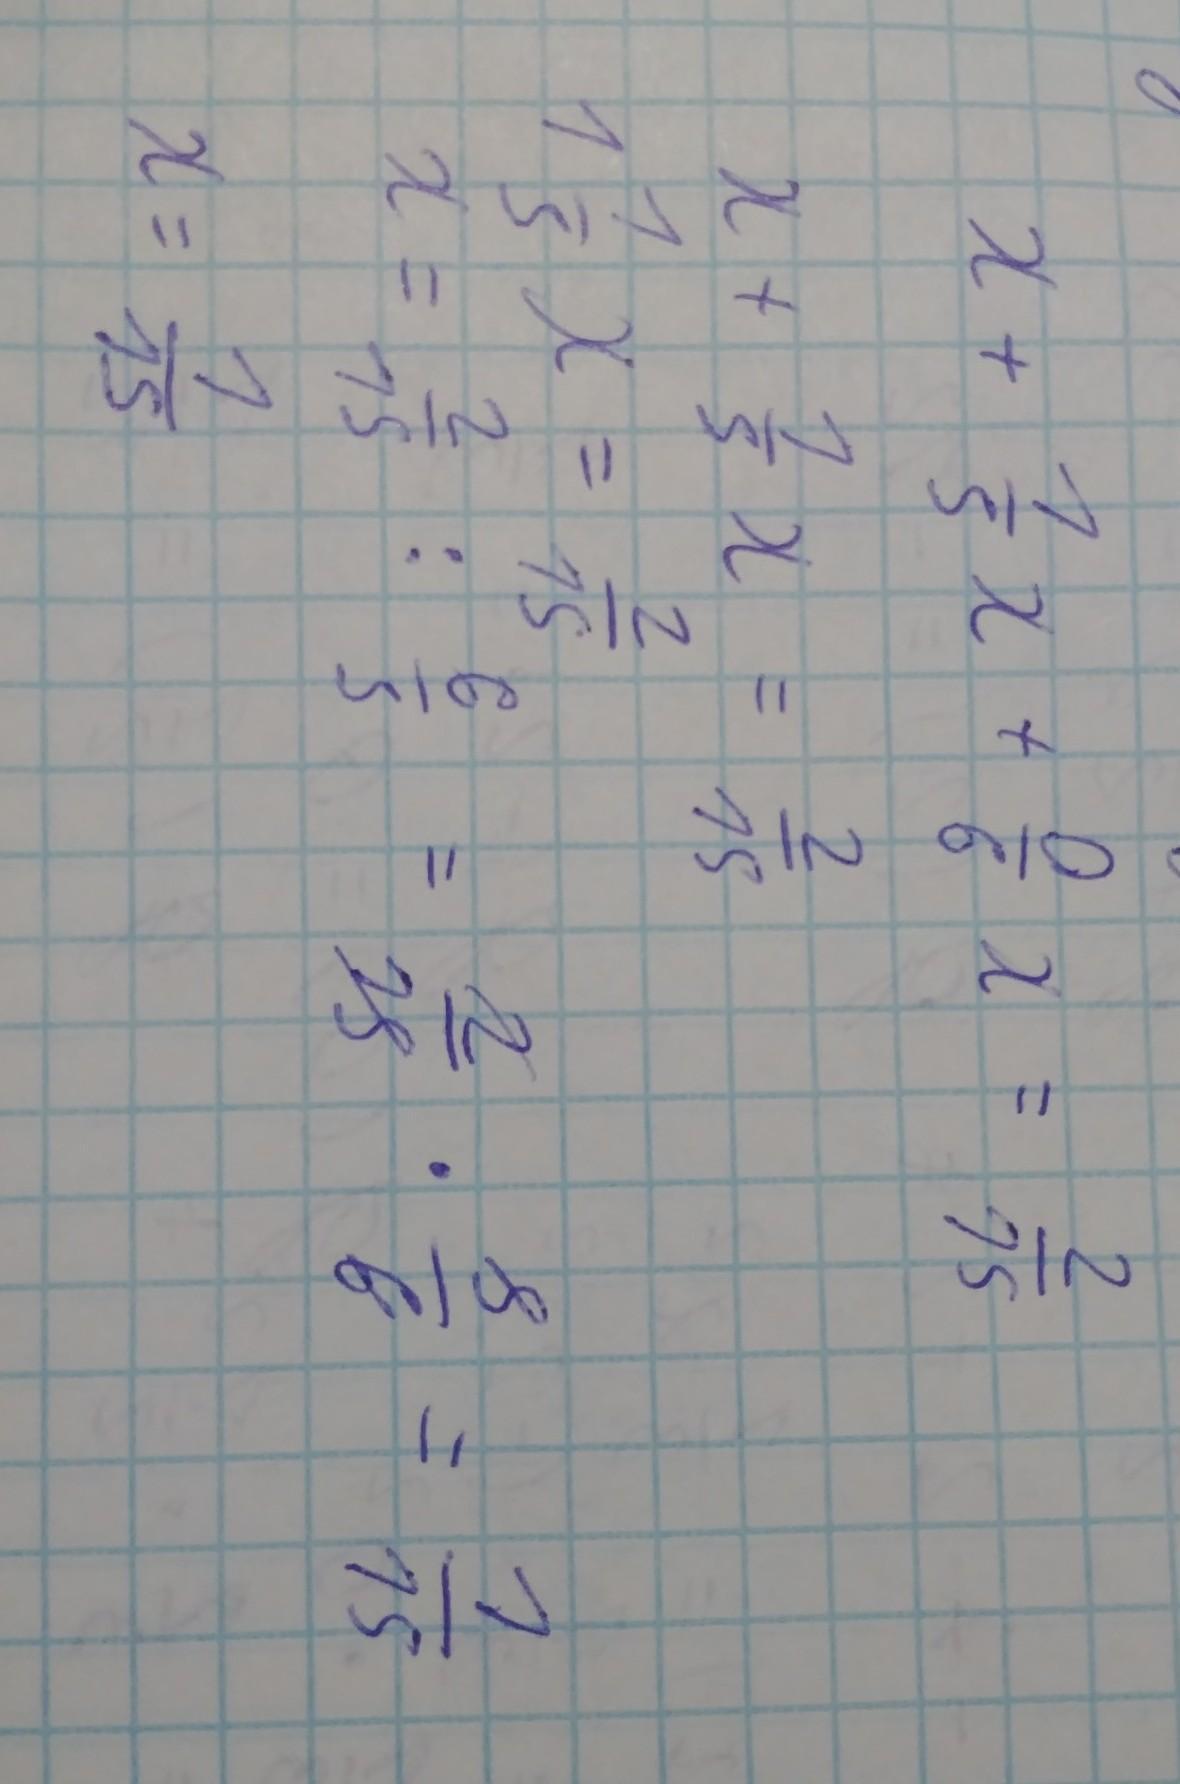 x + 1/5 x + 0/6 x = 2/15
x + 1/5 x = 2/15
1 1/5 x = 2/15
x = 2/15 : 6/5 = 2/15 · 5/6 = 1/15
x = 1/15